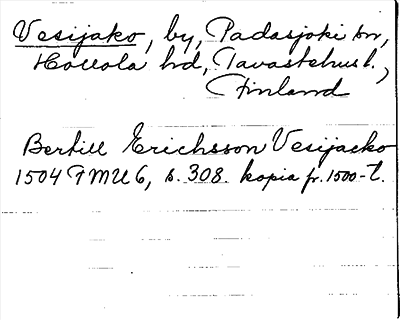 Vesijako, by, Padasjoki sn,
Hollola hd, Tavastehus l.,
Finland
Bertill Erichsson Vesijacko
1504 FMU 6, s. 308. kopia fr. 1500-t.